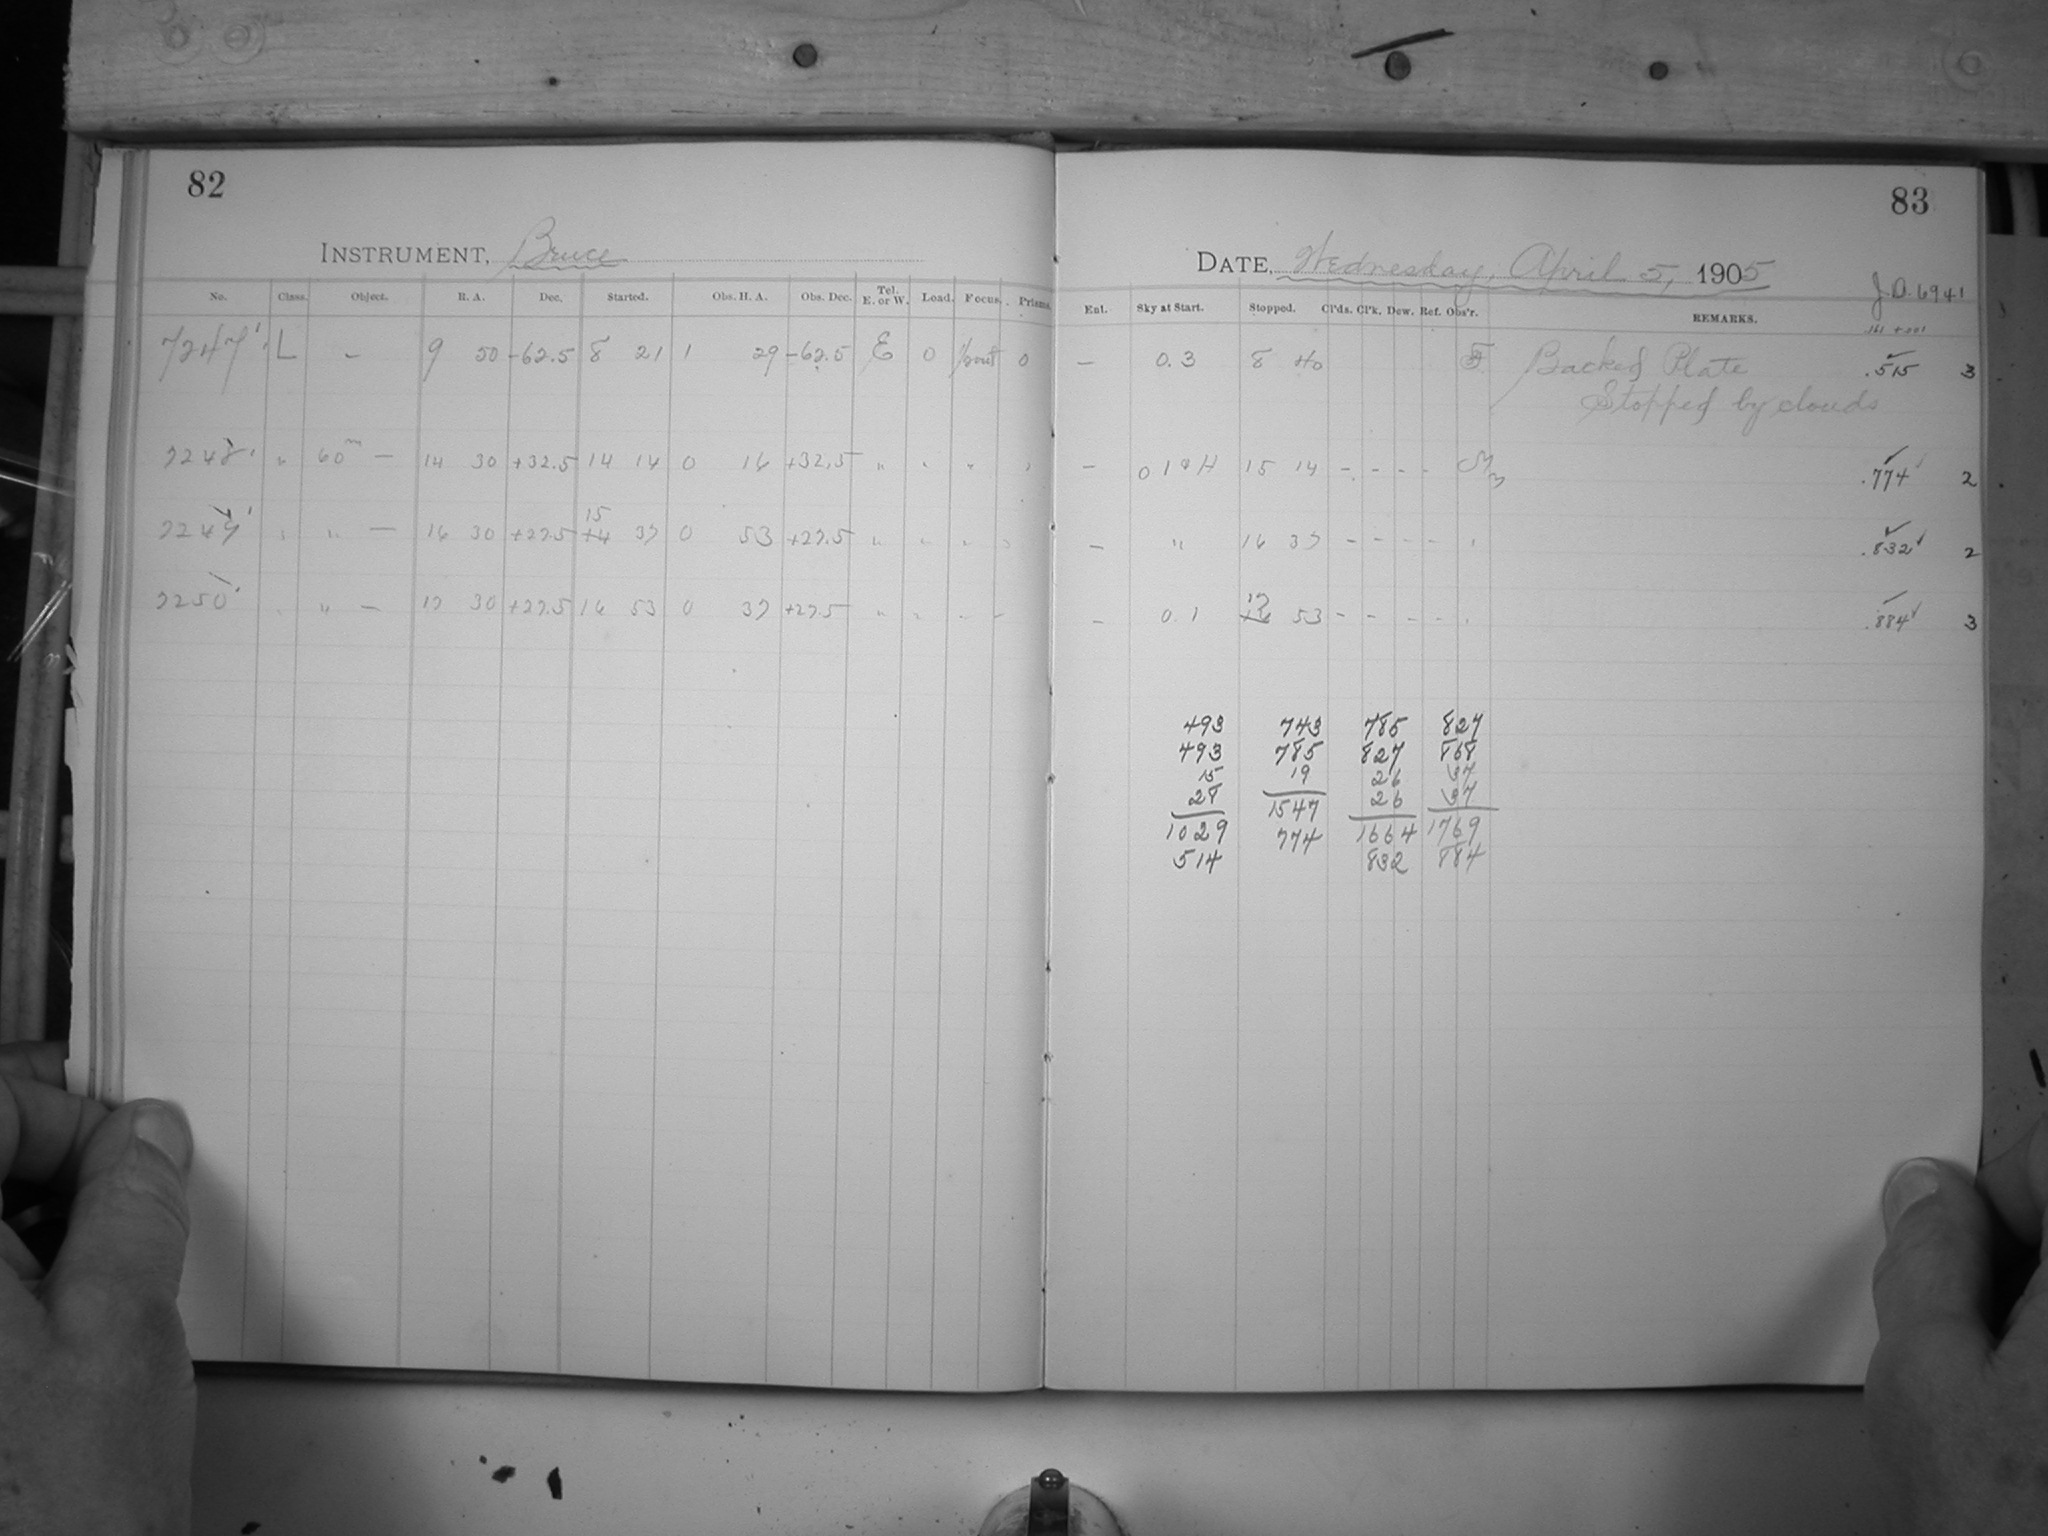 82
INSTRUMENT, Bruce
No. Class. Object. R. A. Dec. Started. Obs. H. A. Obs. Dec. Tel. E. or W. Load. Focus. Prisms.
7247 L - 9 50 -62.5 8 21 1 29 -62.5 E 0 0
7248 " 60m - 14 30 +32.5 14 14 0 16 +32.5 " " " "
7249 " " - 16 30 +27.5 15 37 0 53 +27.5 " " " "
7250 " " - 17 30 +27.5 16 53 0 37 +27.5 " " - -
83
DATE, Wednesday, April 5, 1905
J.D. 6941
Ent. Sky at Start. Stopped. Cl'ds. Cl'k. Dew. Ref. Obs'r. REMARKS.
.161 +.001
- 0.3 8 40 Backed Plate .515 3
Stopped by clouds
- 15 14 - - - - .774 2
- " 16 37 - - - - " .832 2
- 0.1 17 53 - - - - " .884 3
493 743 785 827
493 785 827 868
15 19 26 37
28 1547 26 37
1029 774 1664 1769
514 832 884